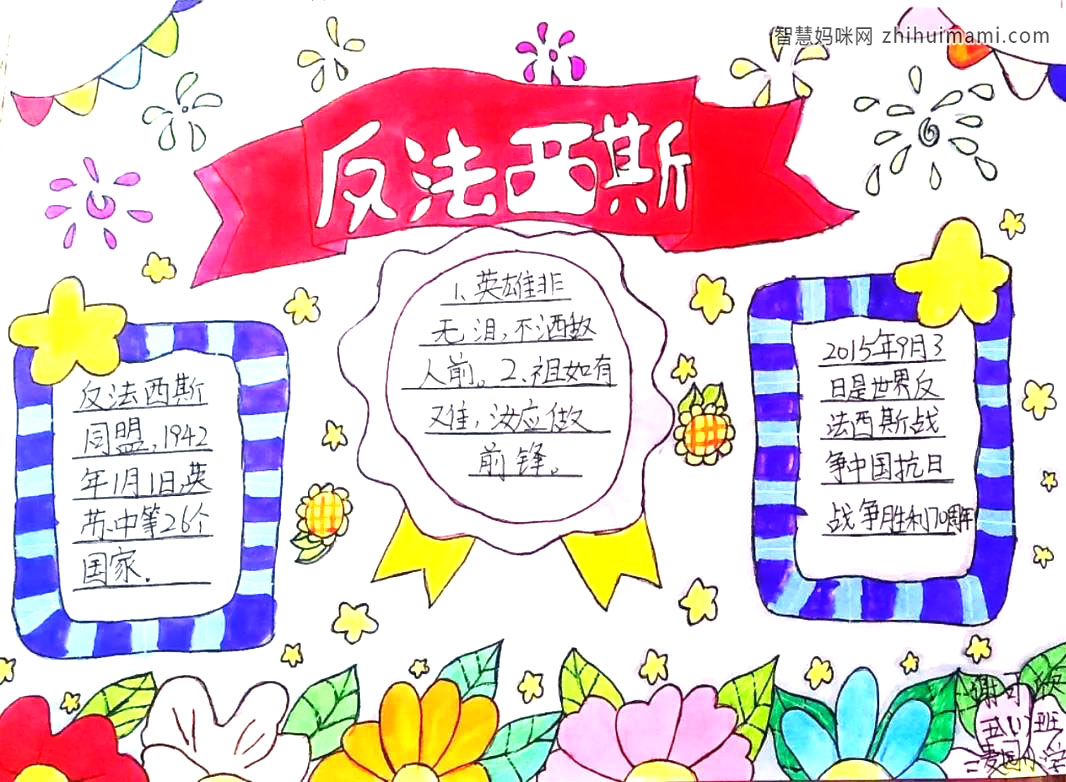 智慧妈咪网 zhihuimami.com
反法西斯
反法西斯
同盟,1942
年1月1日,英
苏.中等26个
国家.
1、英雄非
无,泪,不洒敌
人前。2、祖如有
又难,汝应做
前锋。
2015年9月3
日是世界反
法西斯战
争中国抗日
战争胜利70周年